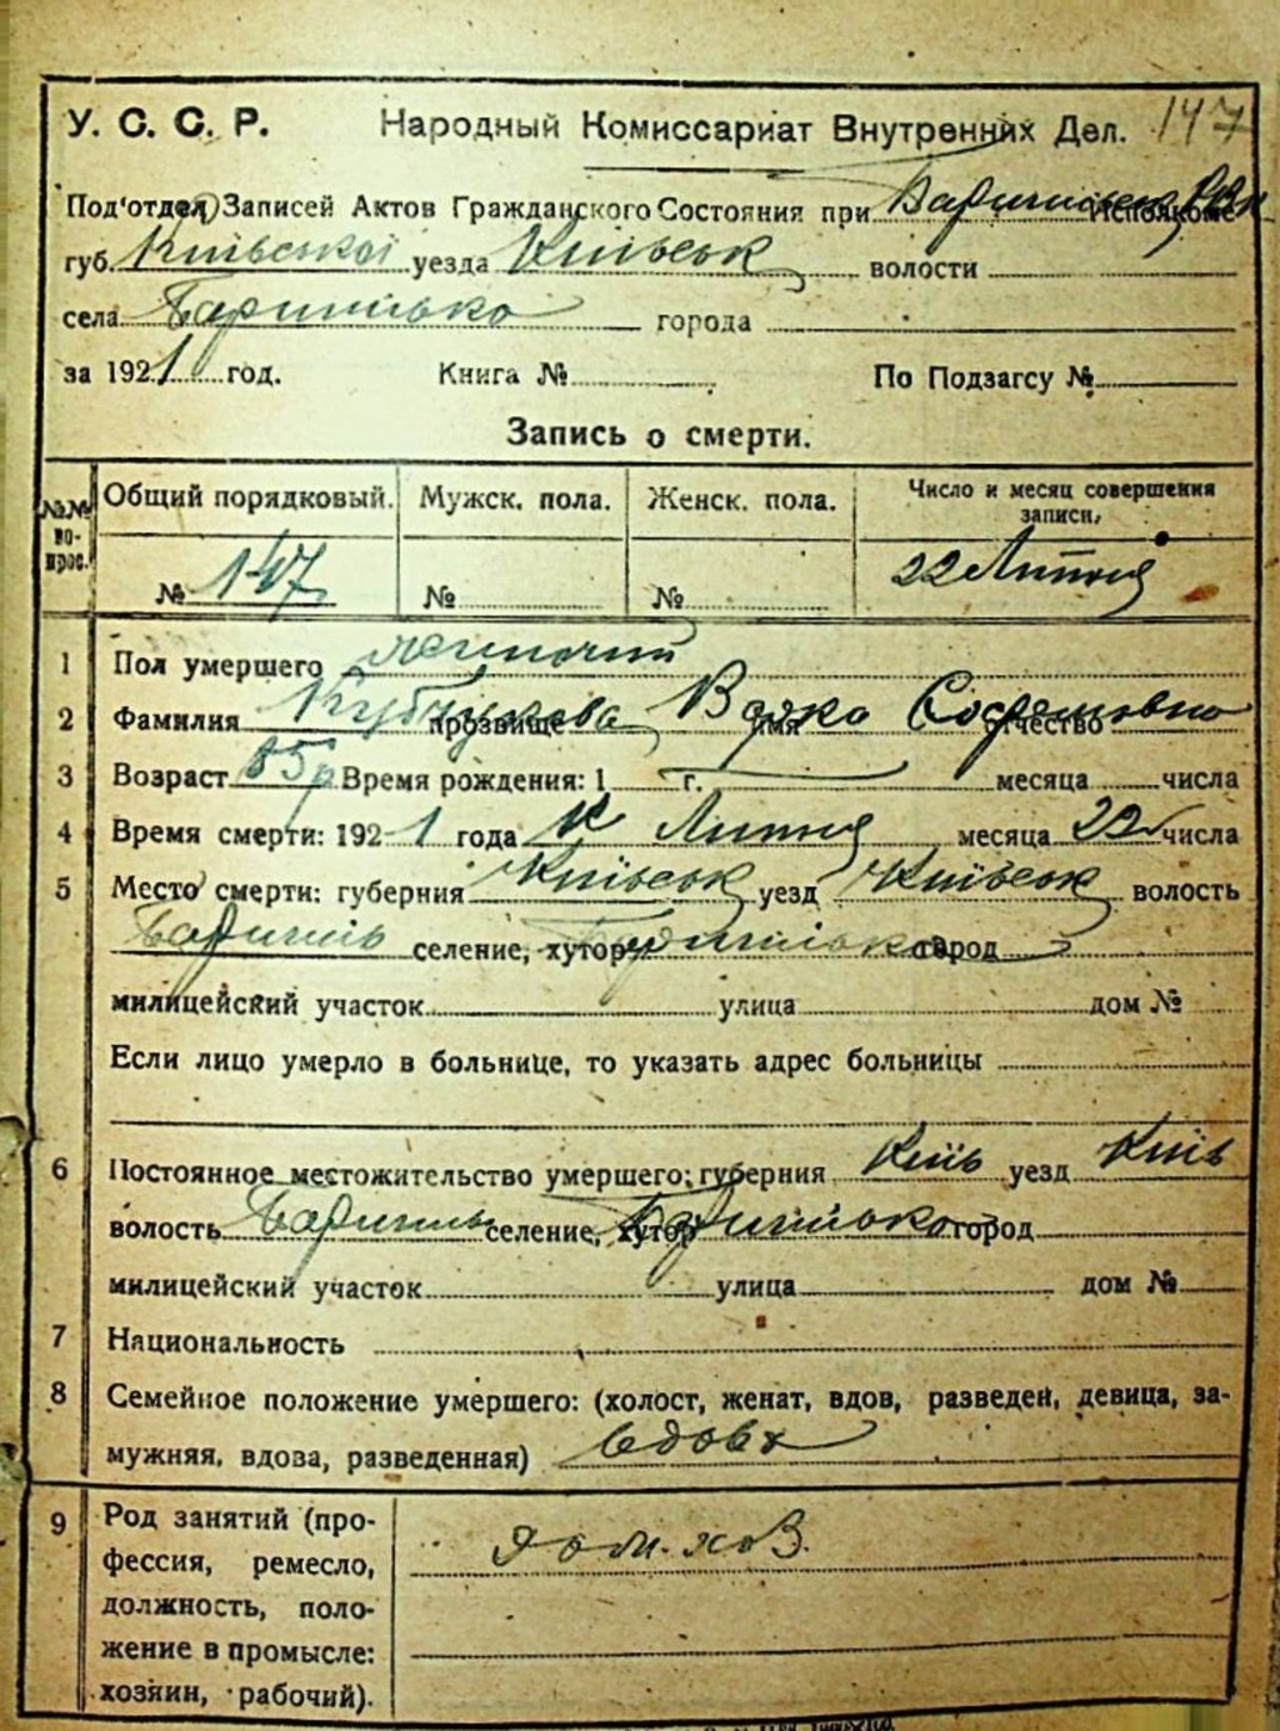 У. С. С. Р. Народный Комиссариат Внутренних Дел. 147
Под'отдел Записей Актов Гражданского Состояния при Исполкоме
губ. Київської уезда Київськ волости
села города
за 1921 год. Книга № По Подзагсу №
Запись о смерти.
№№ во-прос. Общий порядковый. Мужск. пола. Женск. пола. Число и месяц совершения записи,
№ 147 № № 22 Липня
1 Пол умершего
2 Фамилия прозвище имя отчество
3 Возраст 85р Время рождения: 1 г. месяца числа
4 Время смерти: 192 1 года Липня месяца 22 числа
5 Место смерти: губерния Київськ уезд Київськ волость
селение, хутор город
милицейский участок улица дом №
Если лицо умерло в больнице, то указать адрес больницы
6 Постоянное местожительство умершего: губерния Київ уезд Київ
волость селение, хутор город
милицейский участок улица дом №
7 Национальность
8 Семейное положение умершего: (холост, женат, вдов, разведен, девица, за-
мужняя, вдова, разведенная) вдова
9 Род занятий (про-
фессия, ремесло, дом. хоз.
должность, поло-
жение в промысле:
хозяин, рабочий).